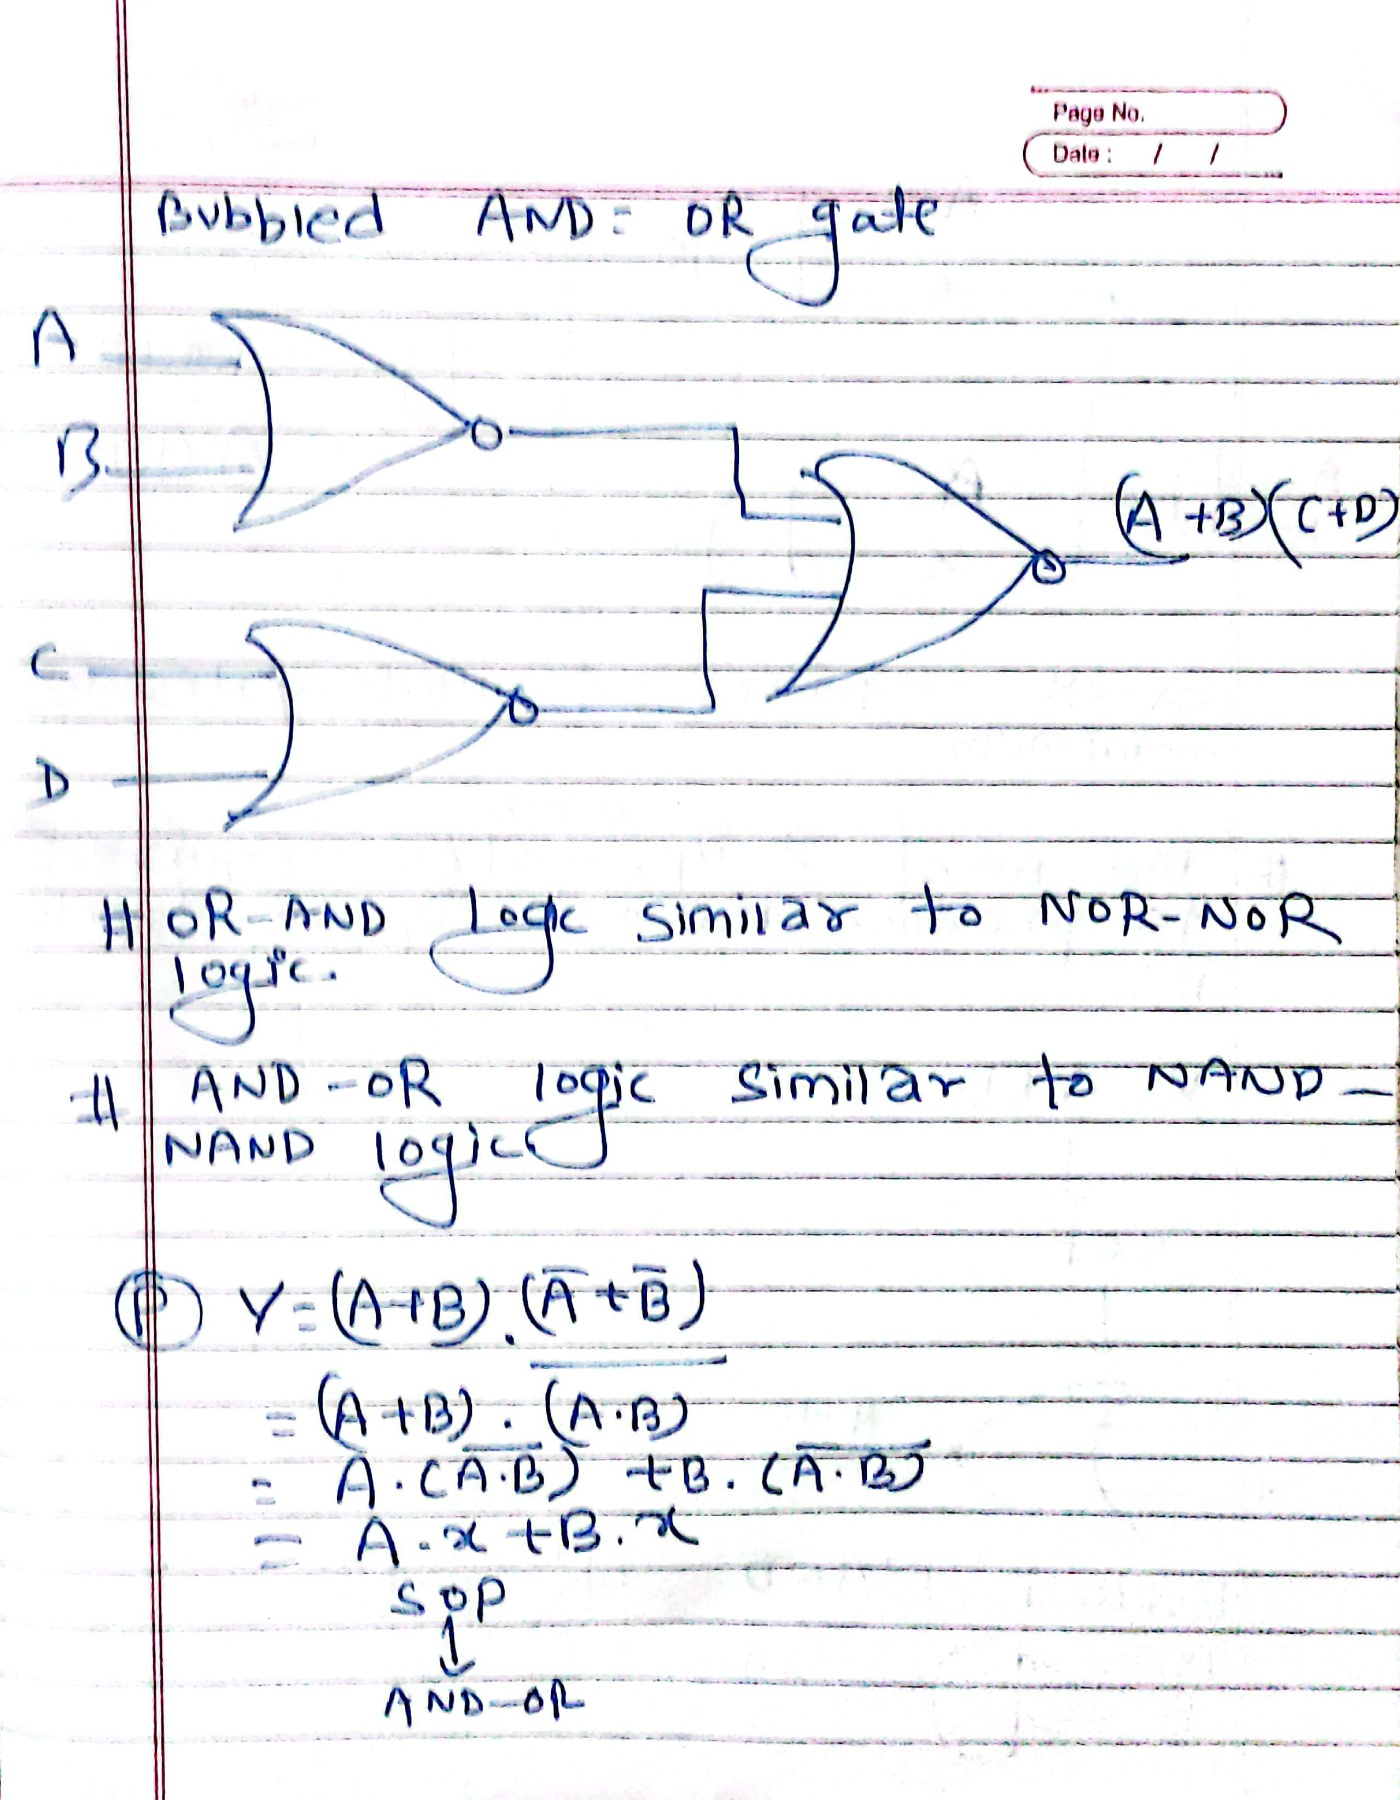 Page No.
Date : / /
Bubbled AND = OR gate
A
B
(A+B)(C+D)
C
D
# OR-AND Logic similar to NOR-NOR
logic.
# AND-OR logic similar to NAND-
NAND logic
(P) Y = (A+B).(A̅+B̅)
= (A+B) . \overline{(A.B)}
= A.(\overline{A.B}) + B.(\overline{A.B})
= A.x + B.x
SOP
↓
AND-OR